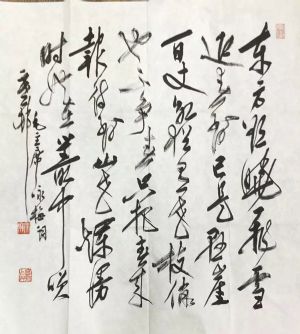 东方欲晓飞雪
迎春到已是悬崖
百丈冰犹有花枝俏
也不争春只把春来
報待到山花爛漫
时她在丛中咲
毛主席咏梅词